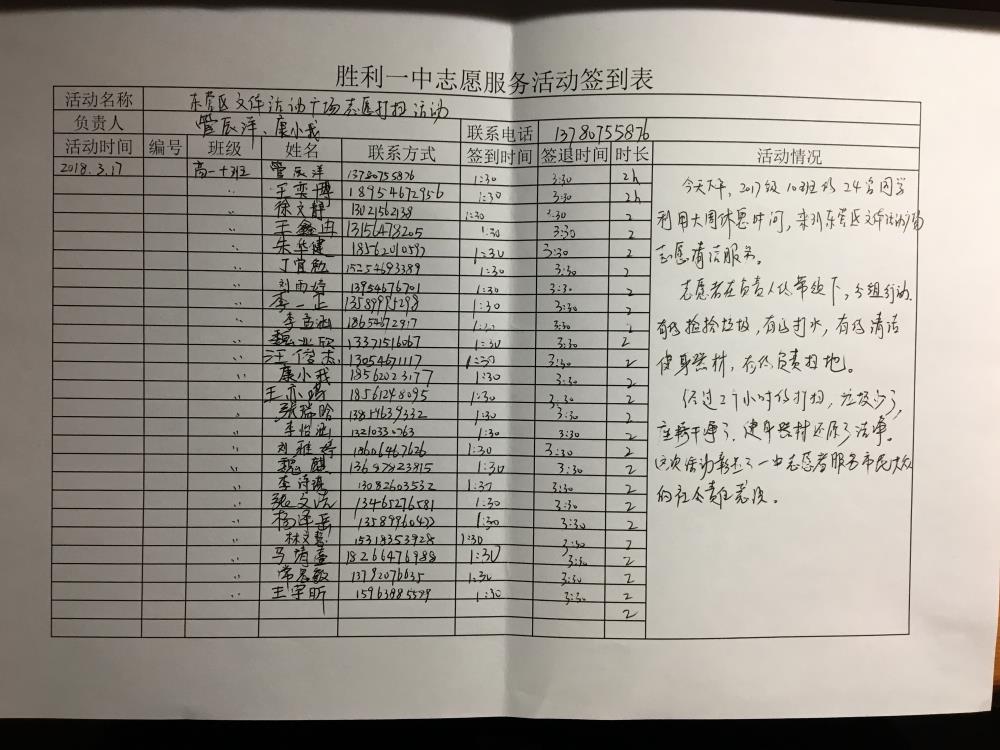 胜利一中志愿服务活动签到表
活动名称 东营区文体活动广场志愿打扫活动
负责人 管辰洋、康小我 联系电话 13780755876
活动时间 编号 班级 姓名 联系方式 签到时间 签退时间 时长 活动情况
2018.3.17 高一十班 管辰洋 13780755876 1:30 3:30 2h
〃 王奕博 18954672956 1:30 3:30 2h
〃 徐文静 13021562138 1:30 3:30 2
〃 王鑫冉 13156478205 1:30 3:30 2
〃 朱华健 1:30 3:30 2
〃 15254693389 1:30 3:30 2
〃 刘雨婷 13954676701 1:30 3:30 2
〃 李一正 13589995298 1:30 3:30 2
〃 李孟涵 18654672917 1:30 3:30 2
〃 13371516067 1:30 3:30 2
〃 汪俊志 13054671117 1:30 3:30 2
〃 康小我 18562023177 1:30 3:30 2
〃 王亦鸣 18561248095 1:30 3:30 2
〃 张瑞晗 13814639332 1:30 3:30 2
〃 李怡涵 13210330763 1:30 3:30 2
〃 刘雅婷 18606467626 1:30 3:30 2
〃 魏麒 13697823815 1:30 3:30 2
〃 李诗琪 13082603532 1:30 3:30 2
〃 张文浩 13465276581 1:30 3:30 2
〃 杨泽岳 1:30 3:30 2
〃 林文慧 15318353928 1:30 3:30 2
〃 马靖壹 18266476988 1:30 3:30 2
〃 常君敏 13792076635 1:30 3:30 2
〃 王宇昕 15963885529 1:30 3:30 2
2
今天下午，2017级10班的24名同学
利用大周休息时间，来到东营区文体活动广场
志愿清洁服务。
志愿者在负责人的带领下，分组行动，
有的捡拾垃圾，有的打水，有的清洁
健身器材，有的负责扫地。
经过2个小时的打扫，垃圾少了，
座椅干净了，健身器材还原了洁净。
这次活动彰显了一中志愿者服务市民大众
的社会责任意识。